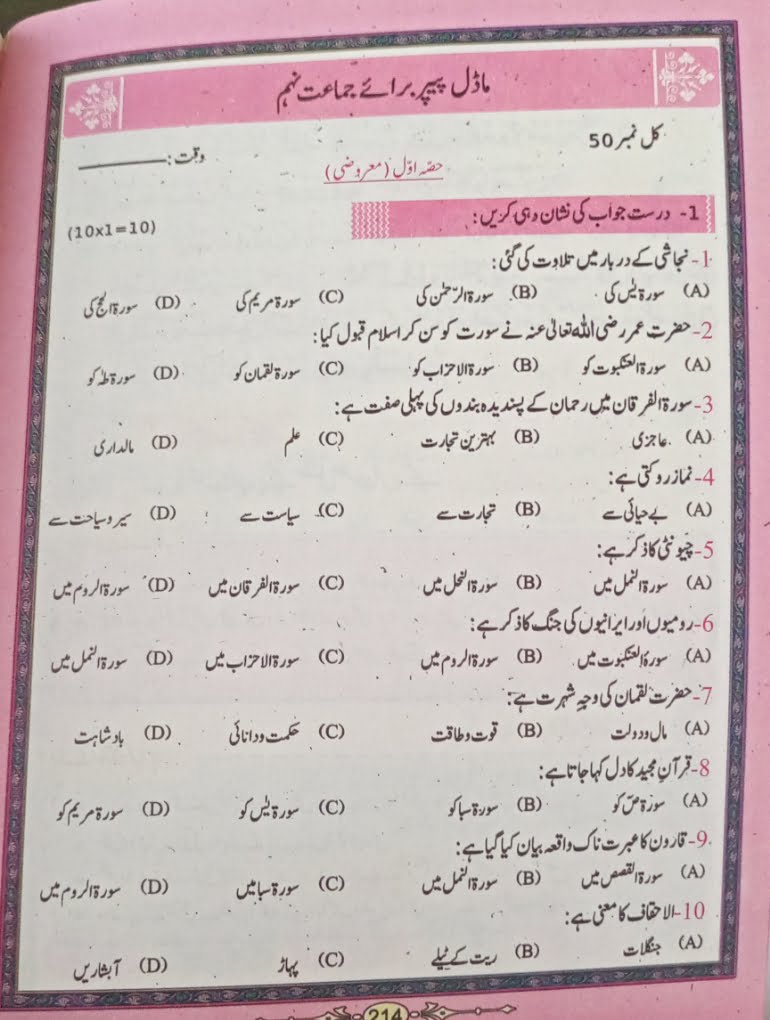 ماڈل پیپر برائے جماعت نہم
کل نمبر 50 وقت: ـــــــــــــ
حصّہ اوّل (معروضی)
1- درست جواب کی نشان دہی کریں: (10x1=10)
1- نجاشی کے دربار میں تلاوت کی گئی:
(A) سورۃ یٰسٓ کی (B) سورۃ الرّحمٰن کی (C) سورۃ مریم کی (D) سورۃ الحج کی
2- حضرت عمر رضی اللہ تعالیٰ عنہ نے سورت کو سن کر اسلام قبول کیا:
(A) سورۃ العنکبوت کو (B) سورۃ الاحزاب کو (C) سورۃ لقمان کو (D) سورۃ طٰہٰ کو
3- سورۃ الفرقان میں رحمان کے پسندیدہ بندوں کی پہلی صفت ہے:
(A) عاجزی (B) بہترین تجارت (C) علم (D) مالداری
4- نماز روکتی ہے:
(A) بے حیائی سے (B) تجارت سے (C) سیاست سے (D) سیر و سیاحت سے
5- چیونٹی کا ذکر ہے:
(A) سورۃ النمل میں (B) سورۃ النحل میں (C) سورۃ الفرقان میں (D) سورۃ الروم میں
6- رومیوں اور ایرانیوں کی جنگ کا ذکر ہے:
(A) سورۃ العنکبوت میں (B) سورۃ الروم میں (C) سورۃ الاحزاب میں (D) سورۃ النمل میں
7- حضرت لقمان کی وجہِ شہرت ہے:
(A) مال و دولت (B) قوت و طاقت (C) حکمت و دانائی (D) بادشاہت
8- قرآنِ مجید کا دل کہا جاتا ہے:
(A) سورۃ صٓ کو (B) سورۃ سبا کو (C) سورۃ یٰسٓ کو (D) سورۃ مریم کو
9- قارون کا عبرت ناک واقعہ بیان کیا گیا ہے:
(A) سورۃ القصص میں (B) سورۃ النمل میں (C) سورۃ سبا میں (D) سورۃ الروم میں
10- الاحقاف کا معنی ہے:
(A) جنگلات (B) ریت کے ٹیلے (C) پہاڑ (D) آبشاریں
214